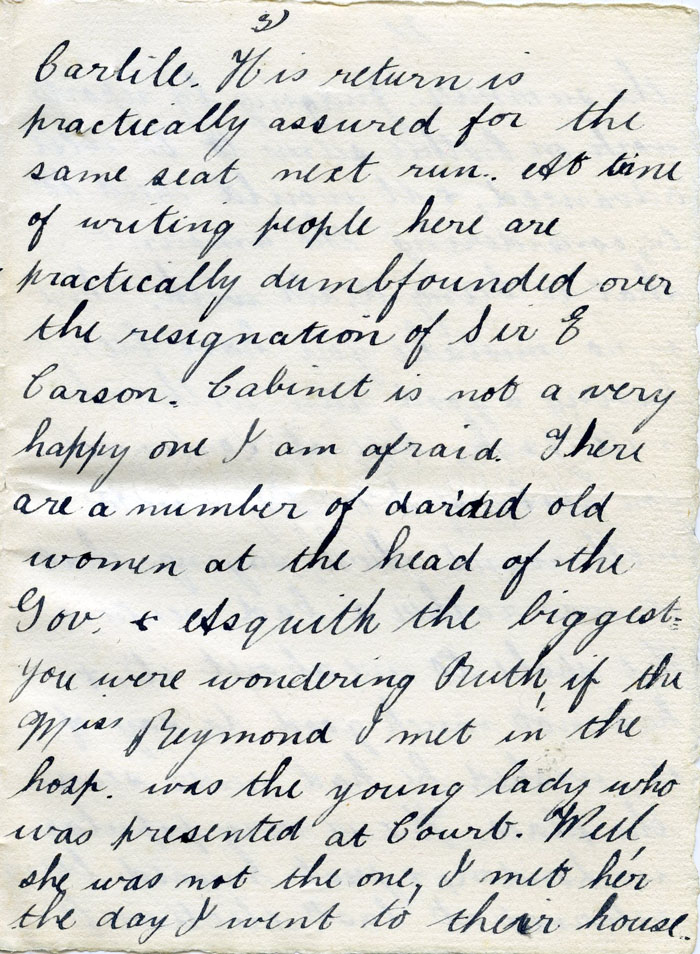 3)
Carlile. His return is
practically assured for the
same seat next run. At time
of writing people here are
practically dumbfounded over
the resignation of Sir E
Carson. Cabinet is not a very
happy one I am afraid. There
are a number of old
women at the head of the
Gov. & Asquith the biggest.
You were wondering Ruth, if the
Miss Reymond I met in the
hosp. was the young lady who
was presented at Court. Well,
she was not the one, I met her
the day I went to their house.